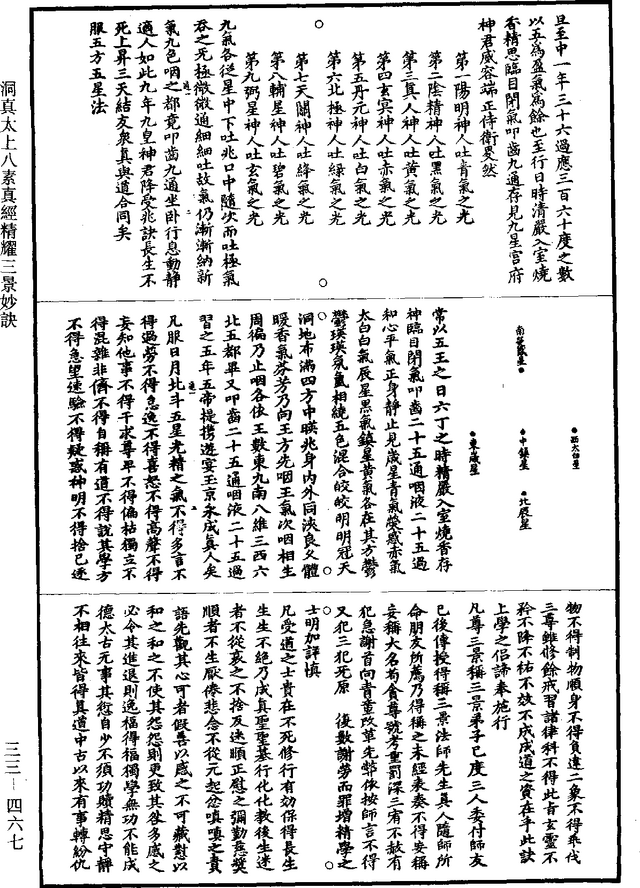 旦至中一年三十六過應三百六十度之數
以五為盈氣為餘也至行日時清嚴入室燒
香精思臨目閉氣叩齒九通存見九星宮府
神君威容端正侍衛畟然
第一陽明神人吐青氣之光
第二陰精神人吐黑氣之光
第三真人神人吐黃氣之光
第四玄冥神人吐赤氣之光
第五丹元神人吐白氣之光
第六北極神人吐綠氣之光
第七天關神人吐絳氣之光
第八輔星神人吐碧氣之光
第九弼星神人吐玄氣之光
九氣各從星中下吐兆口中隨次而吐極氣
吞之无極微微通細細吐故氣仍漸漸納新
氣九色咽之都竟叩齒九通坐臥行息動靜
適人如此九年九皇神君降受兆訣長生不
死上昇三天結友衆真與道合同矣
服五方五星法
西太白星
中鎮星
北辰星
東歲星
常以五王之日六丁之時精嚴入室燒香存
神臨目閉氣叩齒二十五通咽液二十五過
和心平氣正身靜止見歲星青氣熒惑赤氣
太白白氣辰星黑氣鎮星黃氣各在其方鬱
鬱瑛瑛氛氳相繞五色混合皎皎明明冠天
洞地布滿四方中暎兆身內外同浹良久體
暖香氣芬芳乃向王方先咽王氣次咽相生
周徧乃止咽各依王數東九南八維三西六
北五都畢又叩齒二十五通咽液二十五過
習之五年五帝提攜遊宴玉京永成真人矣
凡服日月北斗五星光精之氣不得多言不
得過勞不得急逸不得喜怒不得高聲不得
妄知他事不得干求尊卑不得偏枯獨立不
得混雜非儕不得自稱有道不得說其學方
不得急望速驗不得疑惑神明不得捨己逐
物不得制物順身不得負違二象不得乖伐
三尊雖修餘戒習諸律科不得此旨玄靈不
矜不降不祐不效不成成道之資在乎此訣
上學之侶諦奉施行
凡尊三景稱三景弟子已度三人委付師友
已後傳授得稱三景法師先生真人隨師所
命朋友所薦乃得稱之未經表奏不得妄稱
妄稱大名苟貪尊號考重罰深三宥不赦有
犯急謝首向青童改革先弊依按師言不得
又犯三犯死原　後數謝勞而罪增精學之
士明加詳慎
凡受道之士貴在不死修行有効保得長生
生生不絕乃成真聖聖基行化化教後生迷
者不從哀之不捨反迷順正慰之彌勤慈獎
順者不生厭倦悲念不從元起忿嗔嗔之責
語先觀其心可者假善以感之不可藏懟以
和之和之不使其怨怨則更致其咎多感之
必令其進退則逸福得福獨學無功不能成
德太古元事其愆自少不須功贖精思守靜
不相往來皆得真道中古以來有事轉紛仇
洞真太上八素真經精耀三景妙訣
三三—四六七